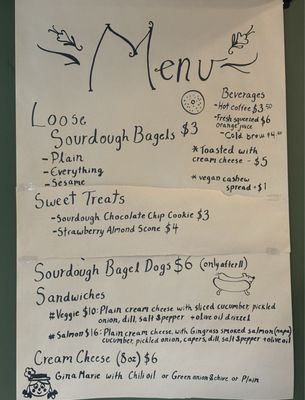 Menu
Beverages
- Hot coffee $3.50
- Fresh squeezed $6
orange juice
- Cold brew $4.00
Loose
Sourdough Bagels $3
- Plain
- Everything
- Sesame
* Toasted with
cream cheese - $5
* vegan cashew
spread + $1
Sweet Treats
- Sourdough Chocolate Chip Cookie $3
- Strawberry Almond Scone $4
Sourdough Bagel Dogs $6 (only after 11)
Sandwiches
# Veggie $10: Plain cream cheese with sliced cucumber, pickled
onion, dill, salt & pepper + olive oil drizzel
# Salmon $16: Plain cream cheese, with Gingrass smoked salmon (napa)
cucumber, pickled onion, capers, dill, salt & pepper + olive oil
Cream Cheese (8oz) $6
Gina Marie with Chili oil or Green onion & chive or Plain